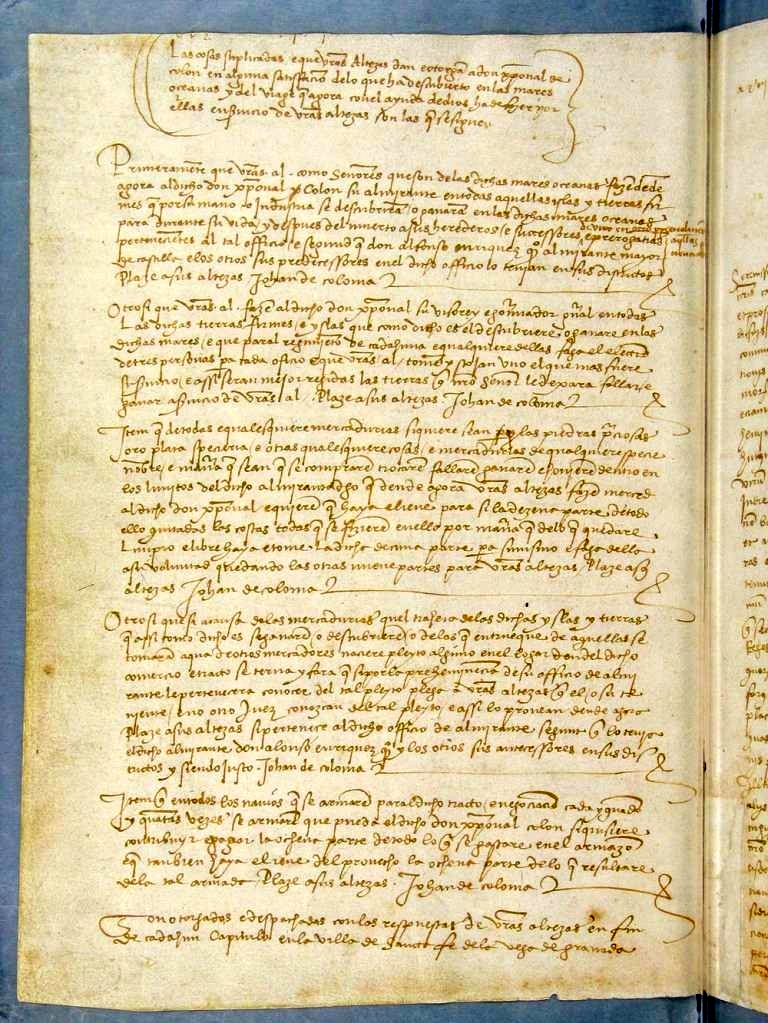 Las cosas suplicadas e que vras Altezas dan e otorgan a don xpoual de
colon en alguna satisfacion delo que ha descubierto en las mares
oceanas y del viage que agora con el ayuda de dios ha de fazer por
ellas en seruicio de vras altezas son las que se siguen
Primeramente que vras al. como Senores que son delas dichas mares oceanas fazen dende
agora al dicho don xpoual Colon su almirante en todas aquellas islas y tierras fir
mes que por su mano o industria se descubriran o ganaran en las dichas mares oceanas
para durante su vida y despues del muerto a sus herederos e sucessores de vno en otro perpetualmente
con todas aquellas preheminencias e prerogatiuas
pertenecientes al tal officio e segund que don alfonso enrriquez qo almirante mayor
de castilla e los otros sus predecessores enel dicho officio lo tenian en sus districtos
Plaze a sus altezas Johan de coloma
Otrosi que vras al. fazen al dicho don xpoual su visorey e gouernador general en todas
Las dichas tierras firmes e yslas que como dicho es el descubriere o ganare en las
dichas mares e que paral regimiento de cada huna e qualquiere dellas faga el eleccion
de tres personas pa cada oficio e que vras al. tomen y scojan vno el que mas fuere
su seruicio e assi seran mejor regidas las tierras que nro Senor le dexara fallar e
ganar a seruicio de vras al. Plaze a sus altezas Johan de coloma
Item que de todas e qualesquiere mercadurias siquiere sean perlas piedras preciosas
oro plata specieria e otras qualesquiere cosas e mercadurias de qualquiere specie
nombre e manera que sean que se compraren trocaren fallaren ganaren e houieren dentro en
los limites del dicho almirantadgo que dende agora vras altezas fazen merced
al dicho don xpoual e quieren que haya e lieue para si la dezena parte de todo
ello quitadas las costas todas que se fizieren en ello por manera que delo que quedare
Limpio e libre haya e tome La dicha decima parte pa si mismo e faga dello
a su voluntad quedando las otras nueue partes para vras altezas Plaze a sus
altezas Johan de coloma
Otrosi que si a causa delas mercadurias quel trahera delas dichas yslas y tierras
que assi como dicho es se ganaren o descubrieren o delas que en trueque de aquellas se
tomaran aqua de otros mercadores naciere pleyto alguno enel logar donde el dicho
comercio e tracto se terna y fara que si por la preheminencia de su officio de almi
rante le pertenecera conocer del tal pleyto plega a vras altezas que el o su te
niente e no otro Juez conozcan del tal pleyto e assi lo prouean dende agora
Plaze a sus altezas si pertenece al dicho officio de almirante segunt que lo tenia
el dicho almirante don alonso enrriquez qo y los otros sus antecessores en sus dis
trictos y siendo justo Johan de coloma
Item que en todos los nauios que se armaren paral dicho tracto e negociacion cada y quando
y quantas vezes se armaren que pueda el dicho don xpoual colon si quisiere
contribuyr e pagar la ochena parte de todo lo que se gastare enel armazon
e que tanbien haya e lieue del prouecho la ochena parte delo que resultare
dela tal armada Plaze a sus altezas. Johan de coloma
Son otorgados e despachados con las respuestas de vras altezas en fin
de cada hun Capitulo en la villa de sancta fe dela vega de granada